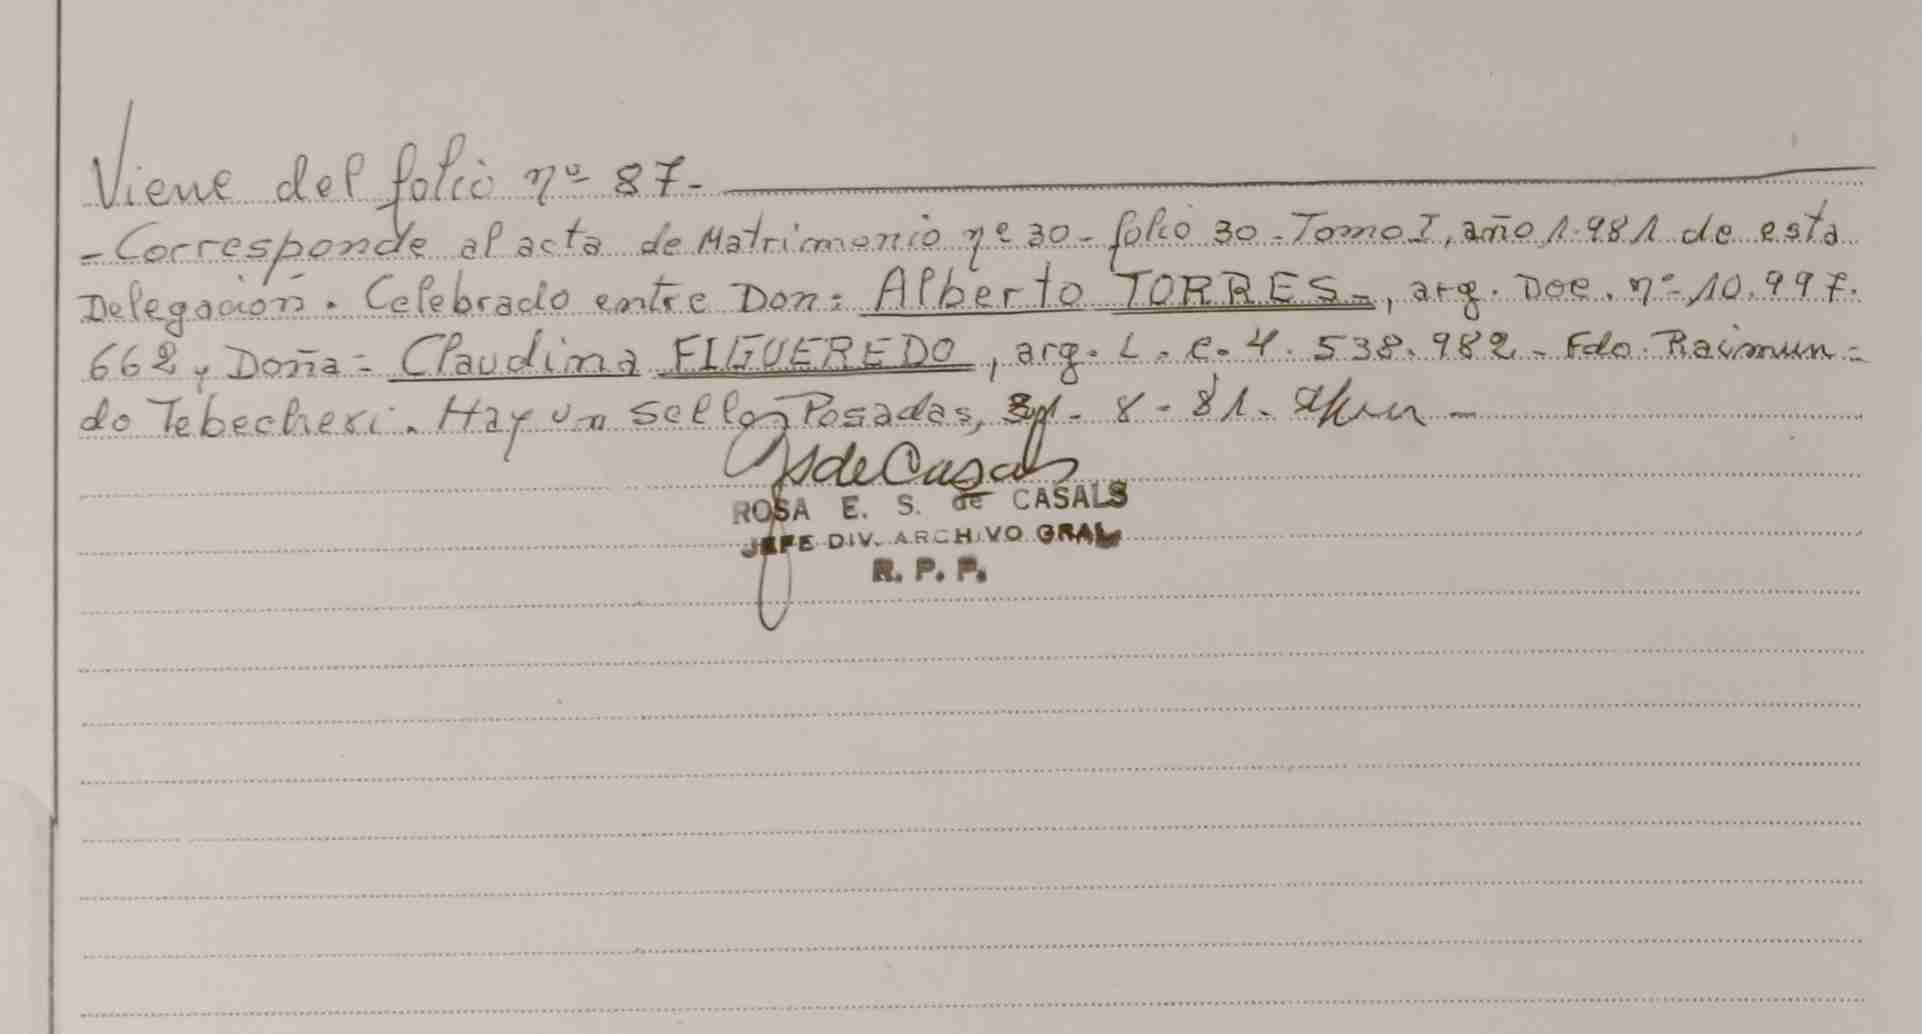 Viene del folio nº 87-
- Corresponde al acta de Matrimonio nº 30 - folio 30 - Tomo I, año 1.981 de esta
Delegación. Celebrado entre Don: Alberto TORRES -, arg. Doc. nº 10.997.
662 y Doña = Claudina FIGUEREDO, arg. L. C. 4.538.982 - Fdo. Raimun=
do Tebecheri. Hay un sello, Posadas, - 8 - 81.
de Casals
ROSA E. S. de CASALS
JEFE DIV. ARCHIVO GRAL
R. P. P.